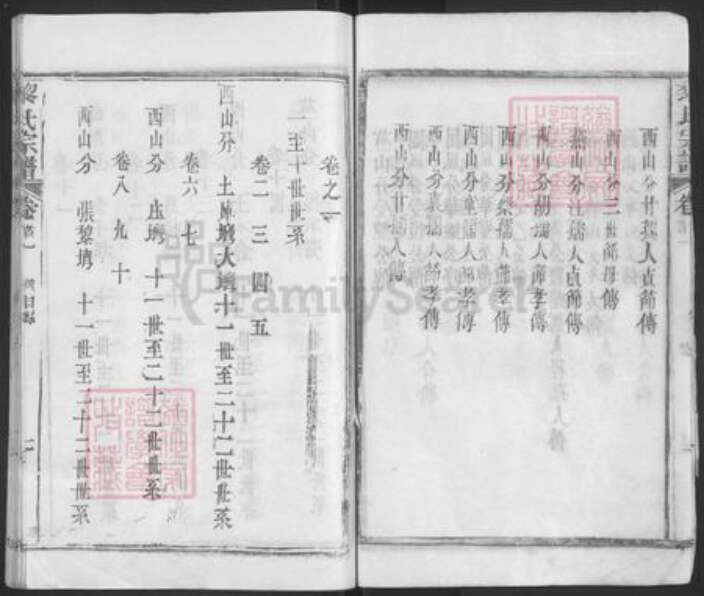 西山分甘孺人貞節傳
西山分三世節母傳
西山分汪孺人貞節傳
西山分胡孺人節孝傳
西山分柴孺人節孝傳
西山分童孺人節孝傳
西山分袁孺人節孝傳
西山分甘孺人傳
黎氏宗譜
卷之一
一至十世世系
卷二三四五
西山分 土庫塆大塆十一世至二十二世世系
卷六七
西山分 庄塆 十一世至二十二世世系
卷八九十
西山分 張黎塆 十一世至二十二世世系
黎氏宗譜 卷首一 總目錄 二
FamilySearch